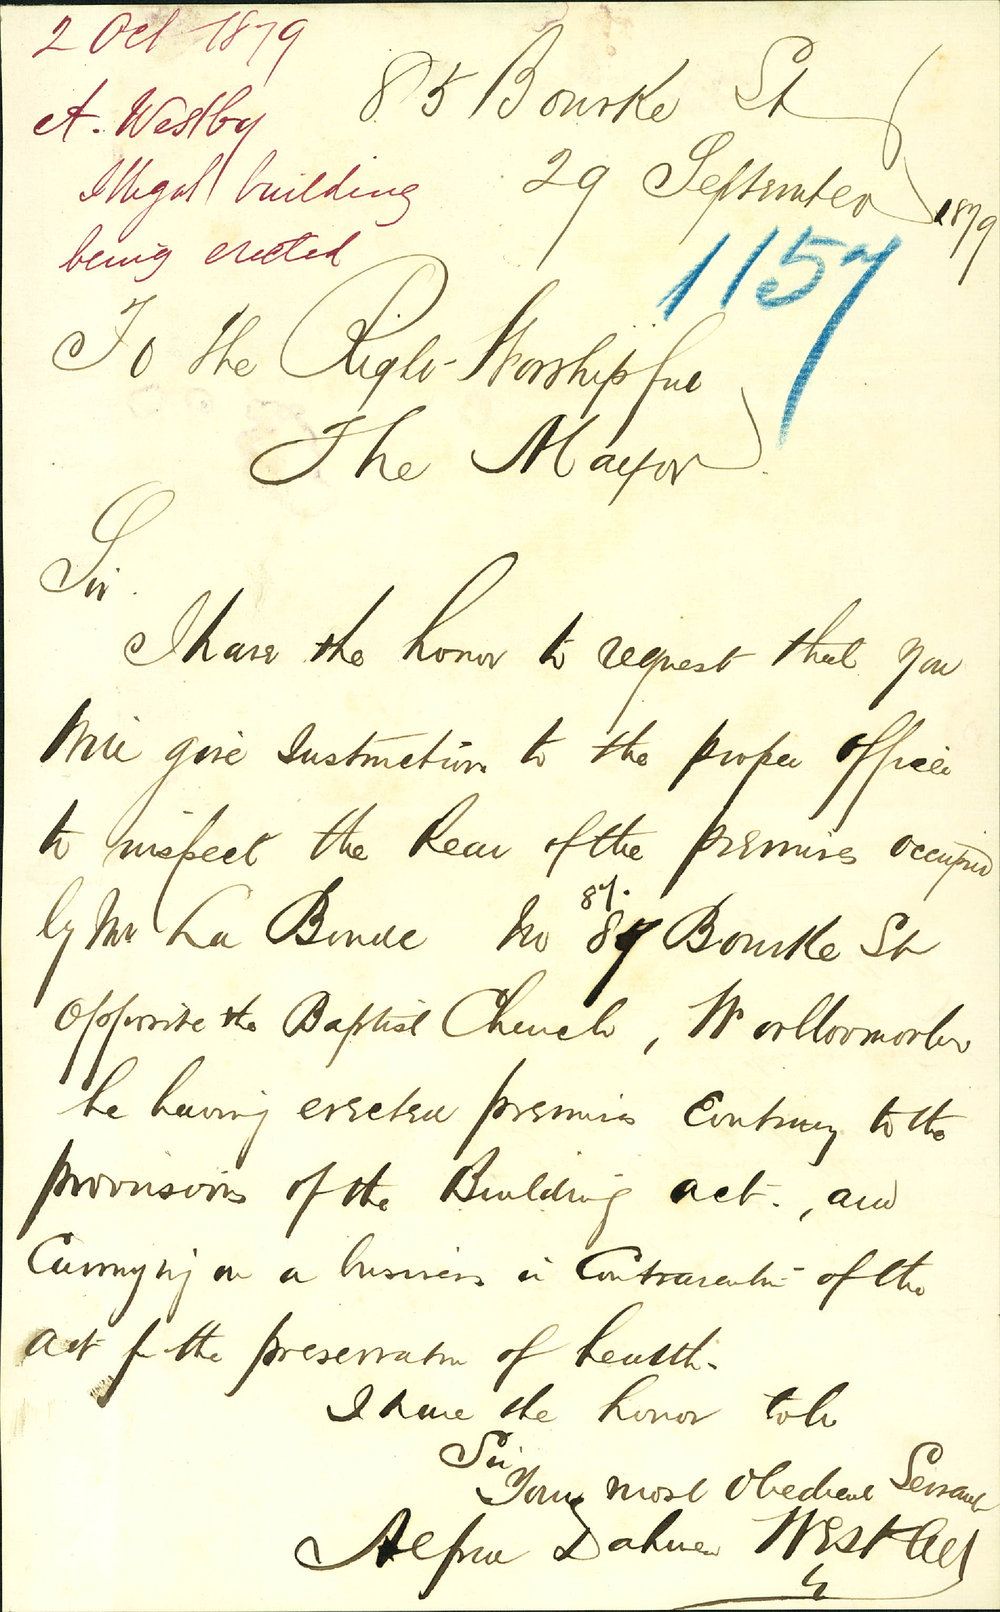 2 Oct 1879
A. Westby
Illegal building
being erected
85 Bourke St
29 September 1879
1157
To the Right Worshipful
The Mayor
Sir.
I have the honor to request that you
will give Instruction to the proper officer
to inspect the Rear of the premises occupied
by Mr La No 87 Bourke St
87.
opposite the Baptist Church, Woolloomooloo
he having erected premises Contrary to the
provisions of the Building act., and
Carrying on a business in Contravention of the
act for the preservation of health.
I have the honor to be
Sir
Your most Obedient Servant
Alfred